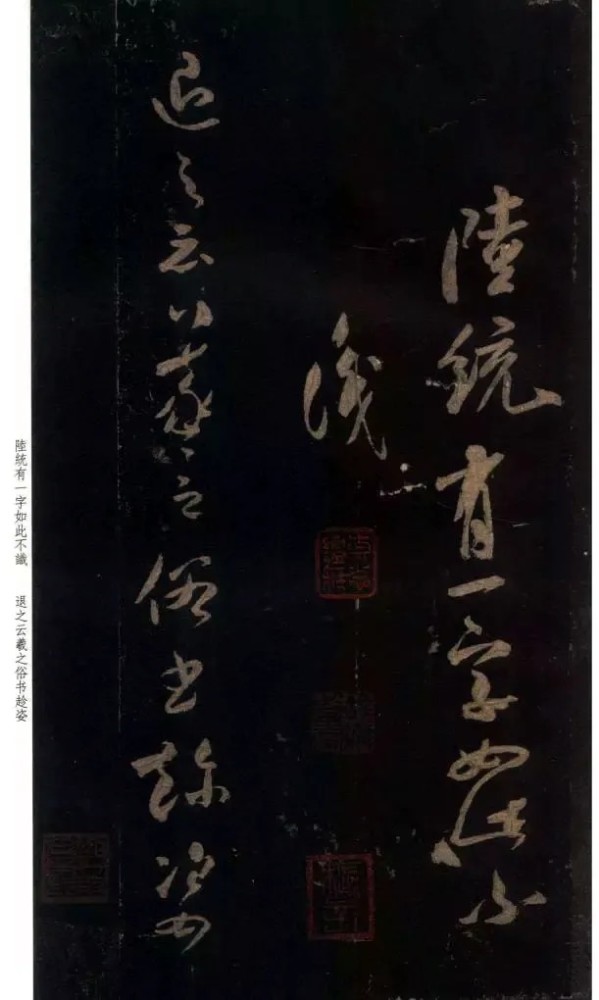 陸統有一字如此不
識
退之云羲之俗书趁姿
陸統有一字如此不識 退之云羲之俗书趁姿